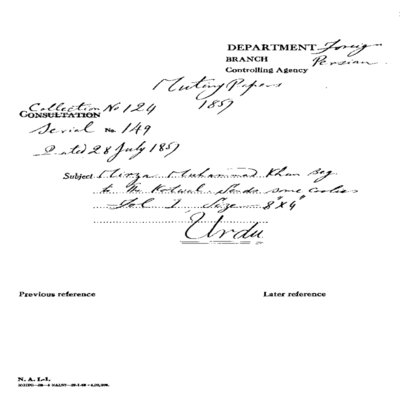 DEPARTMENT Foreign
BRANCH Persian
Controlling Agency
Mutiny Papers
1857
Collection No 124
CONSULTATION
Serial No. 149
Dated 28 July 1857
Subject Mirza Muhammad Khan Beg
to the Kotwal. Sends some coolies
Fol 1, Size 8"X4"
Urdu
Previous reference
Later reference
N. A. I.-1.